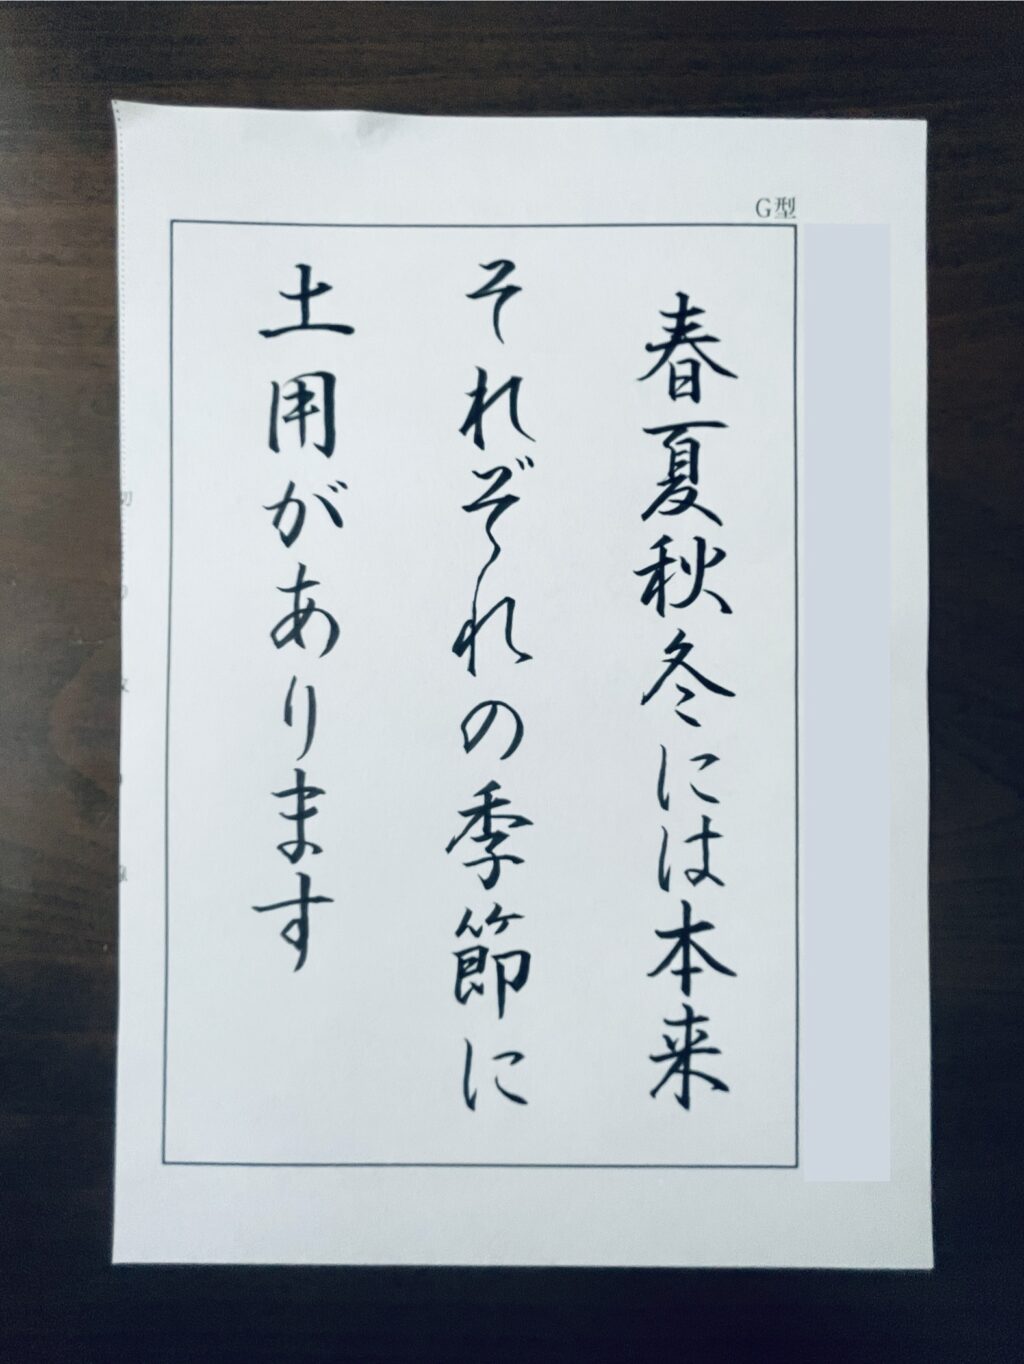 G型
春夏秋冬には本来
それぞれの季節に
土用があります